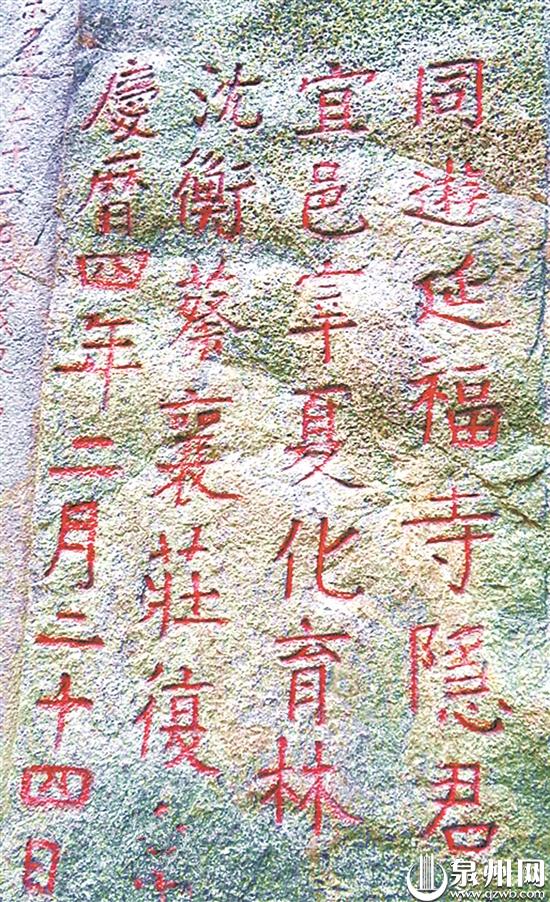 同遊延福寺隐君
宜邑宰夏化育林
沈衡蔡襄莊復
慶曆四年二月二十四日
泉州网
www.qzwb.com